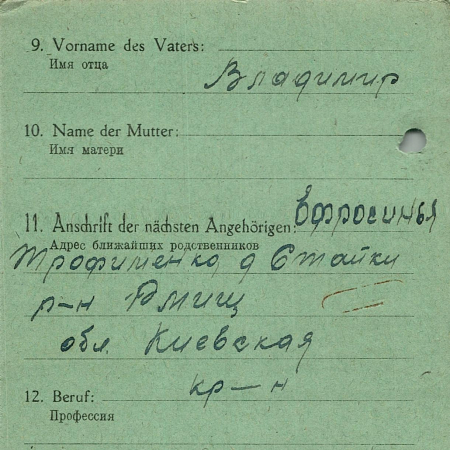 9. Vorname des Vaters:
Имя отца
Владимир
10. Name der Mutter:
Имя матери
11. Anschrift der nächsten Angehörigen: Ефросинья
Адрес ближайших родственников
Трофименко д Стайки
р-н
обл. Киевская
12. Beruf: кр-н
Профессия